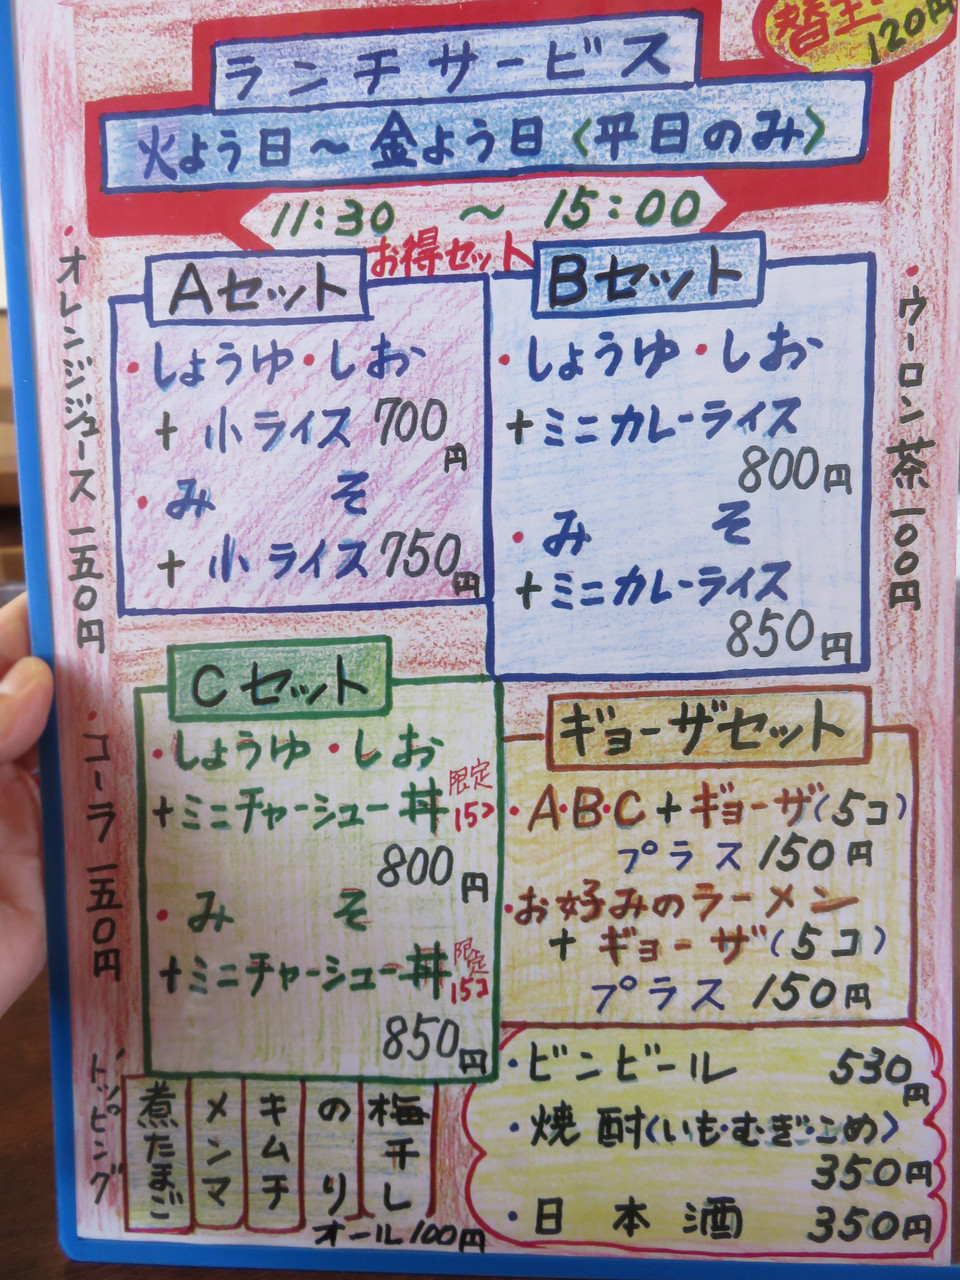 替玉
120円
ランチサービス
火よう日～金よう日〈平日のみ〉
11:30 ～ 15:00
お得セット
Aセット
・しょうゆ・しお
+ 小ライス 700円
・みそ
+ 小ライス 750円
Bセット
・しょうゆ・しお
+ミニカレーライス
800円
・みそ
+ミニカレーライス
850円
・オレンジジュース 一五〇円
・ウーロン茶 一〇〇円
Cセット
・しょうゆ・しお
+ミニチャーシュー丼 限定15コ
800円
・みそ
+ミニチャーシュー丼 限定15コ
850円
ギョーザセット
・A・B・C+ギョーザ(5コ)
プラス 150円
・お好みのラーメン
+ ギョーザ(5コ)
プラス 150円
・コーラ 一五〇円
トッピング
煮たまご
メンマ
キムチ
のり
梅干し
オール100円
・ビンビール 530円
・焼酎〈いも・むぎ・こめ〉
350円
・日本酒 350円